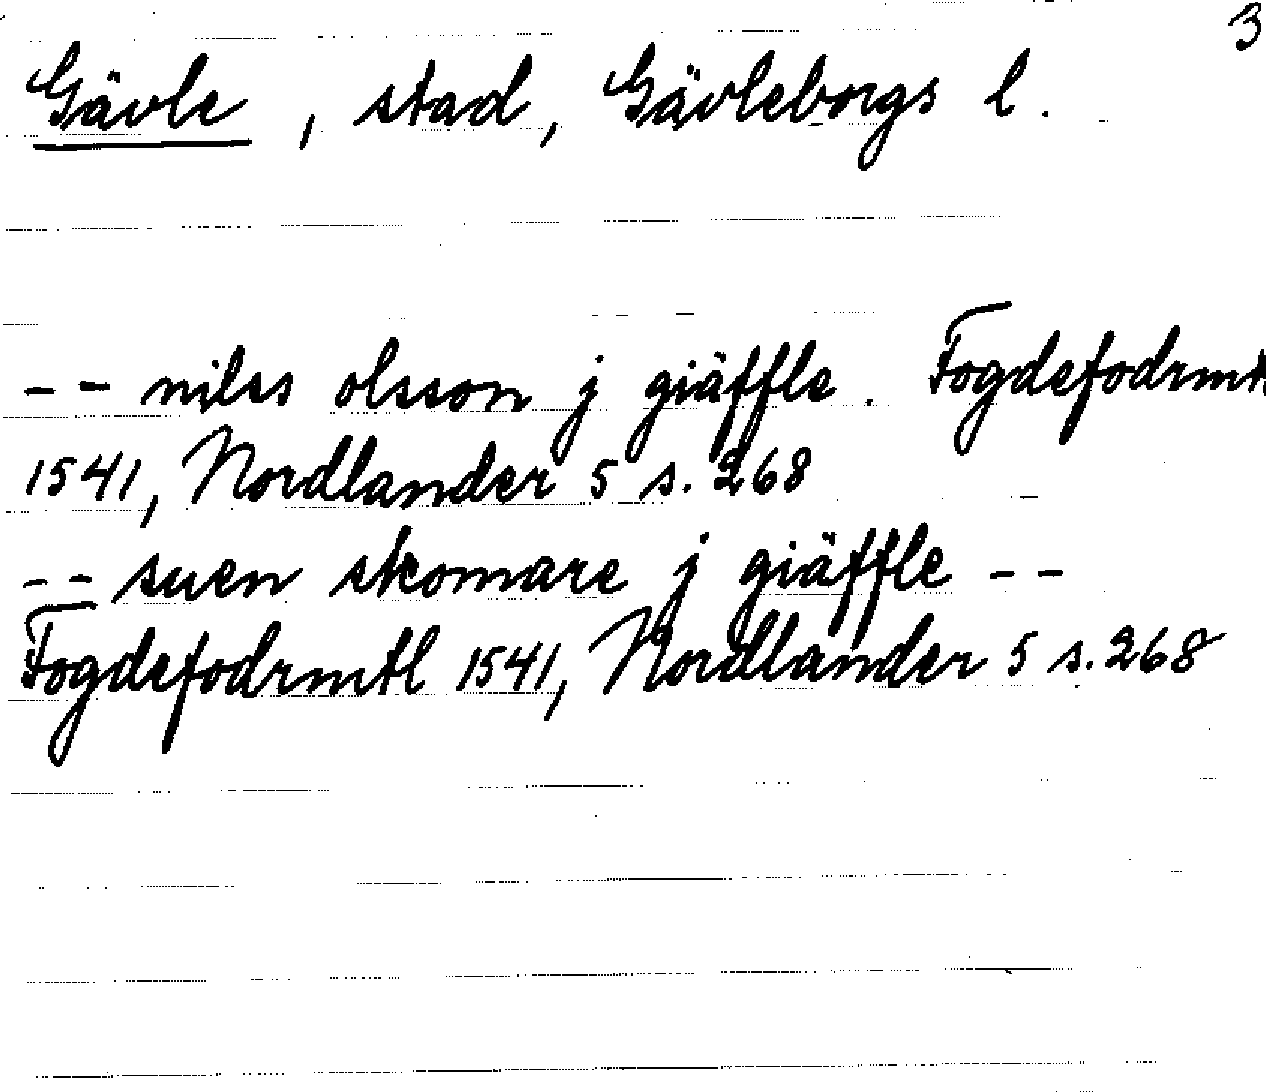 3
Gävle, stad, Gävleborgs l.
-- niles olsson j giäffle. Fogdefodrmt
1541, Nordlander 5 s. 268
-- suen skomare j giäffle --
Fogdefodrmtl 1541, Nordlander 5 s. 268